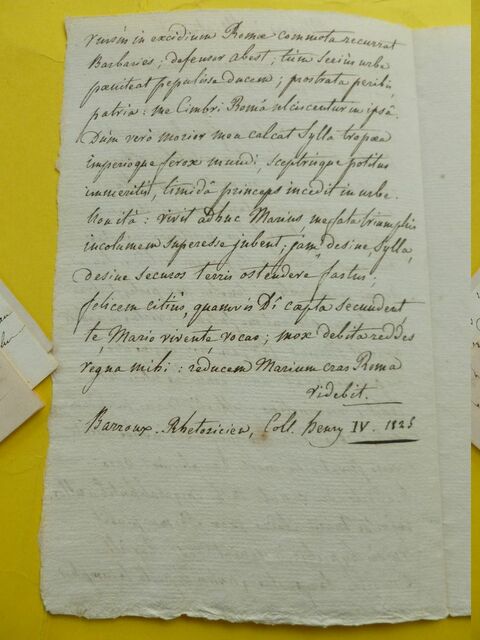 rursùs in excidium Romæ commota recurrat
Barbaries; defensor abest; tùm seriùs urbs
pœniteat pepulisse ducem; prostrata peribis,
patria: me Cimbri Româ ulciscentur in ipsâ.
Dùm verò morior mea calcat Sylla tropæa
imperioque ferox mundi, sceptrisque potitus
immeritis, timidâ princeps incedit in urbe.
Non ità: vivit adhuc Marius me fata triumphis
incolumem superesse jubent; jam desine, Sylla,
desine securos terris ostendere fastus.
felicem citiùs, quamvis Di cæpta secundent
te, Mario vivente vocas; mox debita reddes
regna mihi: reducem Marium cras Roma
videbit.
Barroux. Rhetoricien, Coll. henry IV. 1825